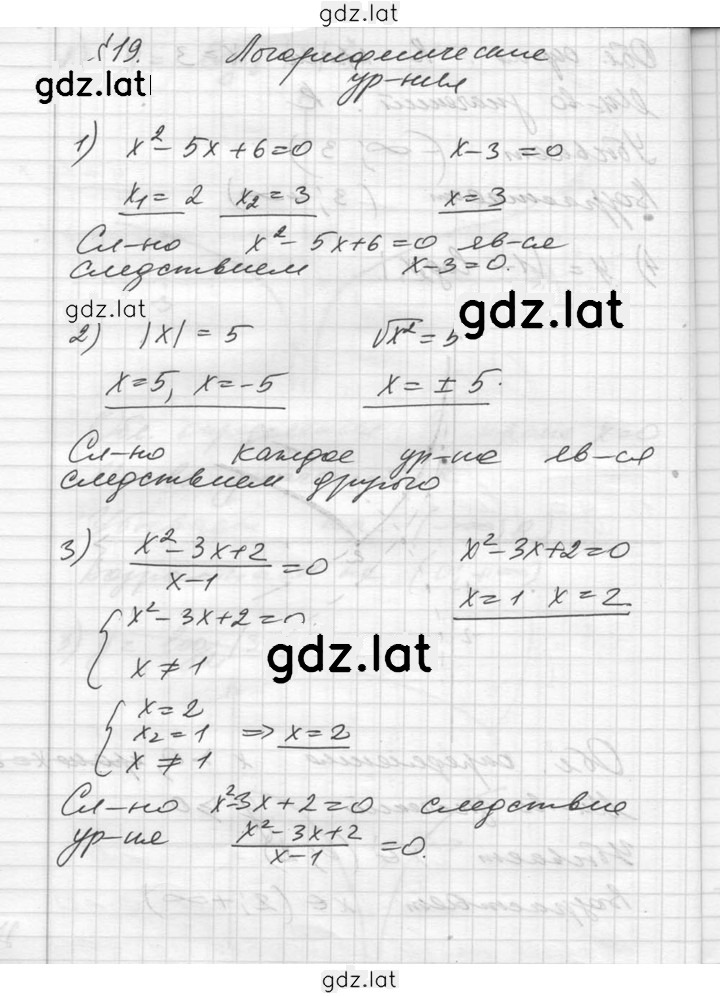 gdz.lat
§19. Логарифмические
gdz.lat ур-ния
1) x² - 5x + 6 = 0 x - 3 = 0
x₁ = 2 x₂ = 3 x = 3
Сл-но x² - 5x + 6 = 0 яв-ся
следствием x - 3 = 0.
gdz.lat gdz.lat
2) |x| = 5 √x² = 5
x = 5, x = -5 x = ± 5.
Сл-но каждое ур-ие яв-ся
следствием другого
3) (x² - 3x + 2)/(x - 1) = 0 x² - 3x + 2 = 0
{ x² - 3x + 2 = 0. x = 1 x = 2.
x ≠ 1 gdz.lat
{ x = 2
x₂ = 1 => x = 2
x ≠ 1
Сл-но x² - 3x + 2 = 0 следствие
ур-ия (x² - 3x + 2)/(x - 1) = 0.
gdz.lat